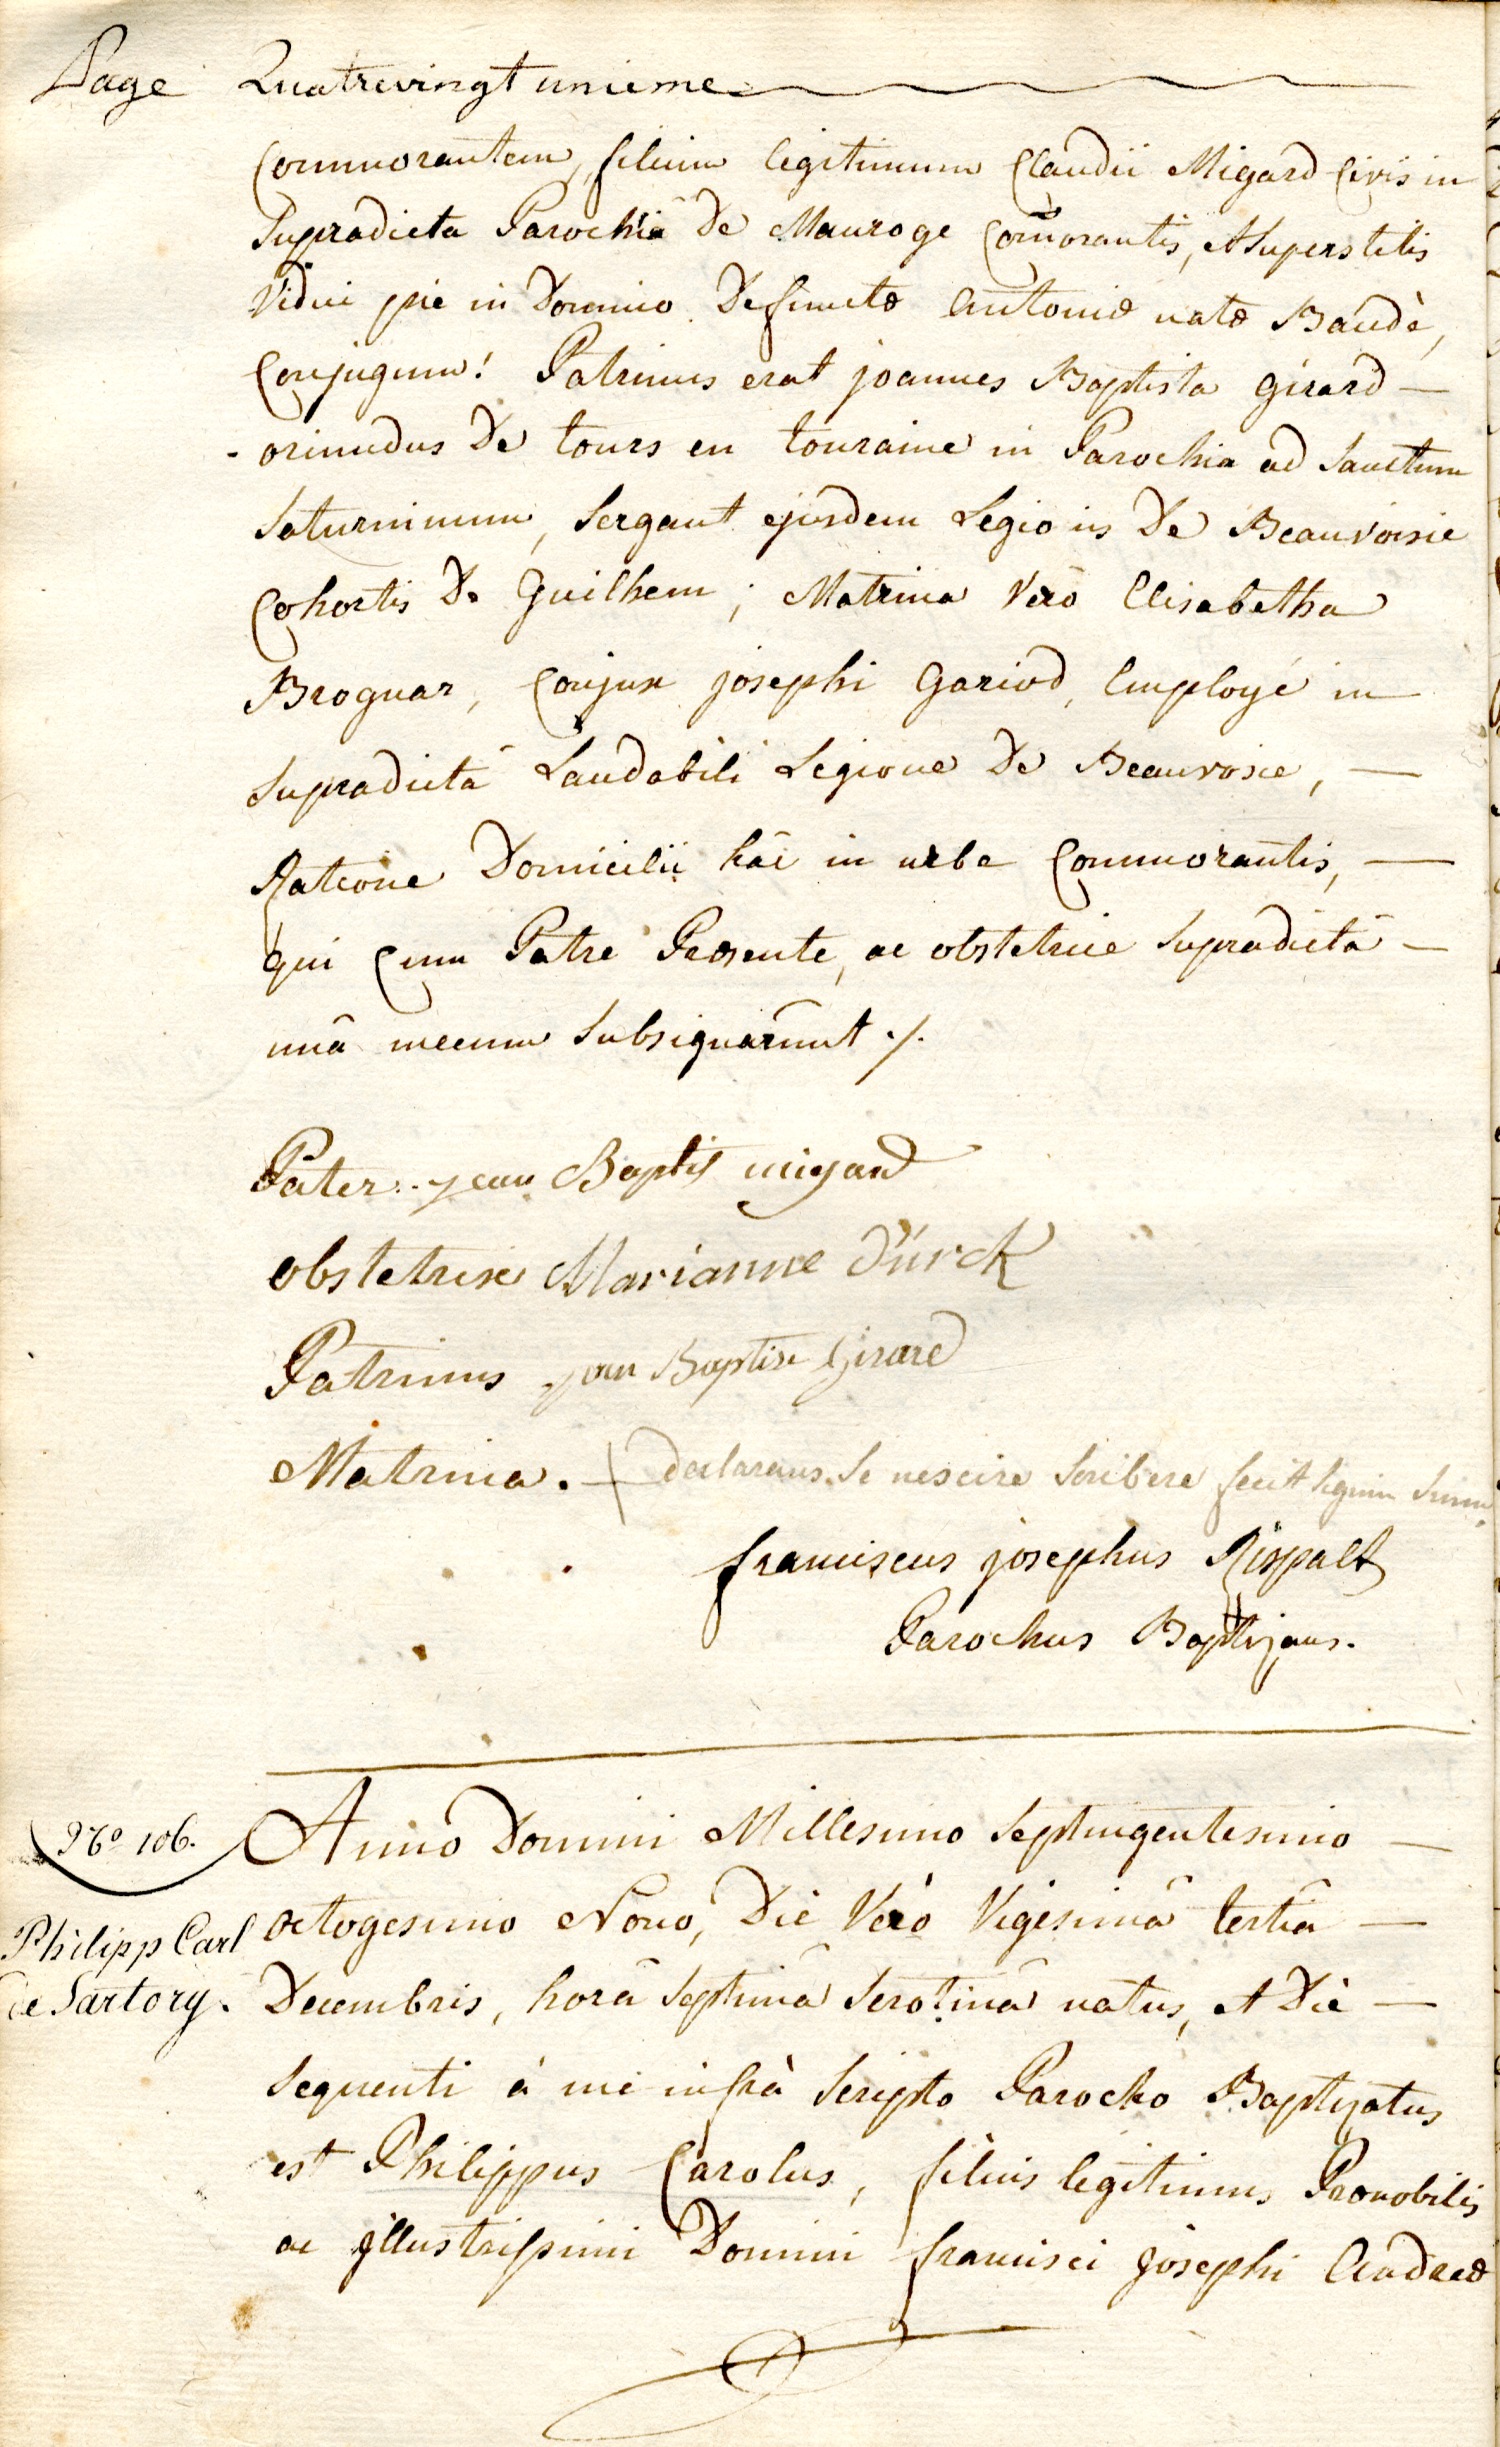 Page Quatrevingt unieme
Commorantem, filium legitimum Claudii Migard Civis in
Supradicta Parochiâ De Mauroge Com̄orantis, et Superstitis
Vidui pie in Domino Defunctæ Antoniæ natæ Baudè,
Conjugum! Patrinus erat joannes Baptista Girard —
oriundus De tours en touraine in Parochia ad Sanctum
Saturninum, Sergant ejusdem Legionis De Beauvoisie
Cohortis De Guilhem; Matrina Verò Elisabetha
Broguar, Conjux josephi Gariod, Employé in
Supradictâ Laudabili Legione De Beauvosie, —
Ratione Domicilii hâc in urbe Commorantis, —
qui Cum Patre Præsente, ac obstetrice Supradictâ —
unâ mecum Subsignarunt ./.
Pater. jean Baptis migard
obstetrix Marianne Dürck
Patrinus jean Baptiste Girard
Matrina. + declarans Se nescire Scribere fecit Signum Suum.
franciscus josephus Rispalt
Parochus Baptizans.
No 106.
Philipp Carl
de Sartory.
Anno Domini Millesimo Septingentesimo —
octogesimo Nono, Die Verò Vigesimâ tertiâ —
Decembris, horâ Septimâ Serotinâ natus, et Diè —
Sequenti à me infrà Scripto Parocho Baptizatus
est Philippus Carolus, filius legitimus Prænobilis
ac Illustrissimi Domini francisci josephi Andreæ